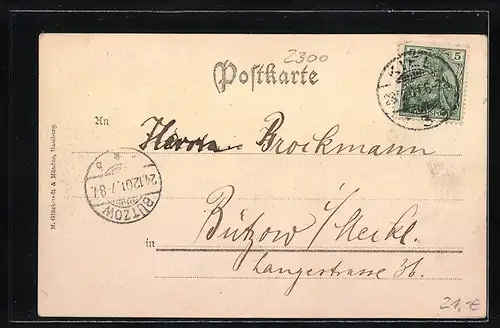 2300
Postkarte
5
KIEL
An
Brockmann
24.12.01.7-8V.
BÜTZOW
in Bützow i/Meckl.
Langestrasse 36.
M. Glückstadt & Münden, Hamburg.
21,-€